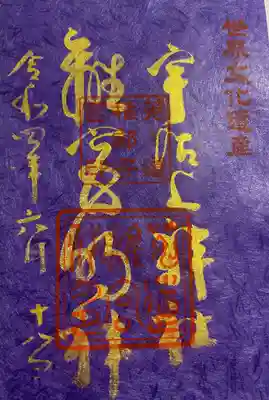 世界文化遺産
宇治上神社
離宮明神
令和四年六月